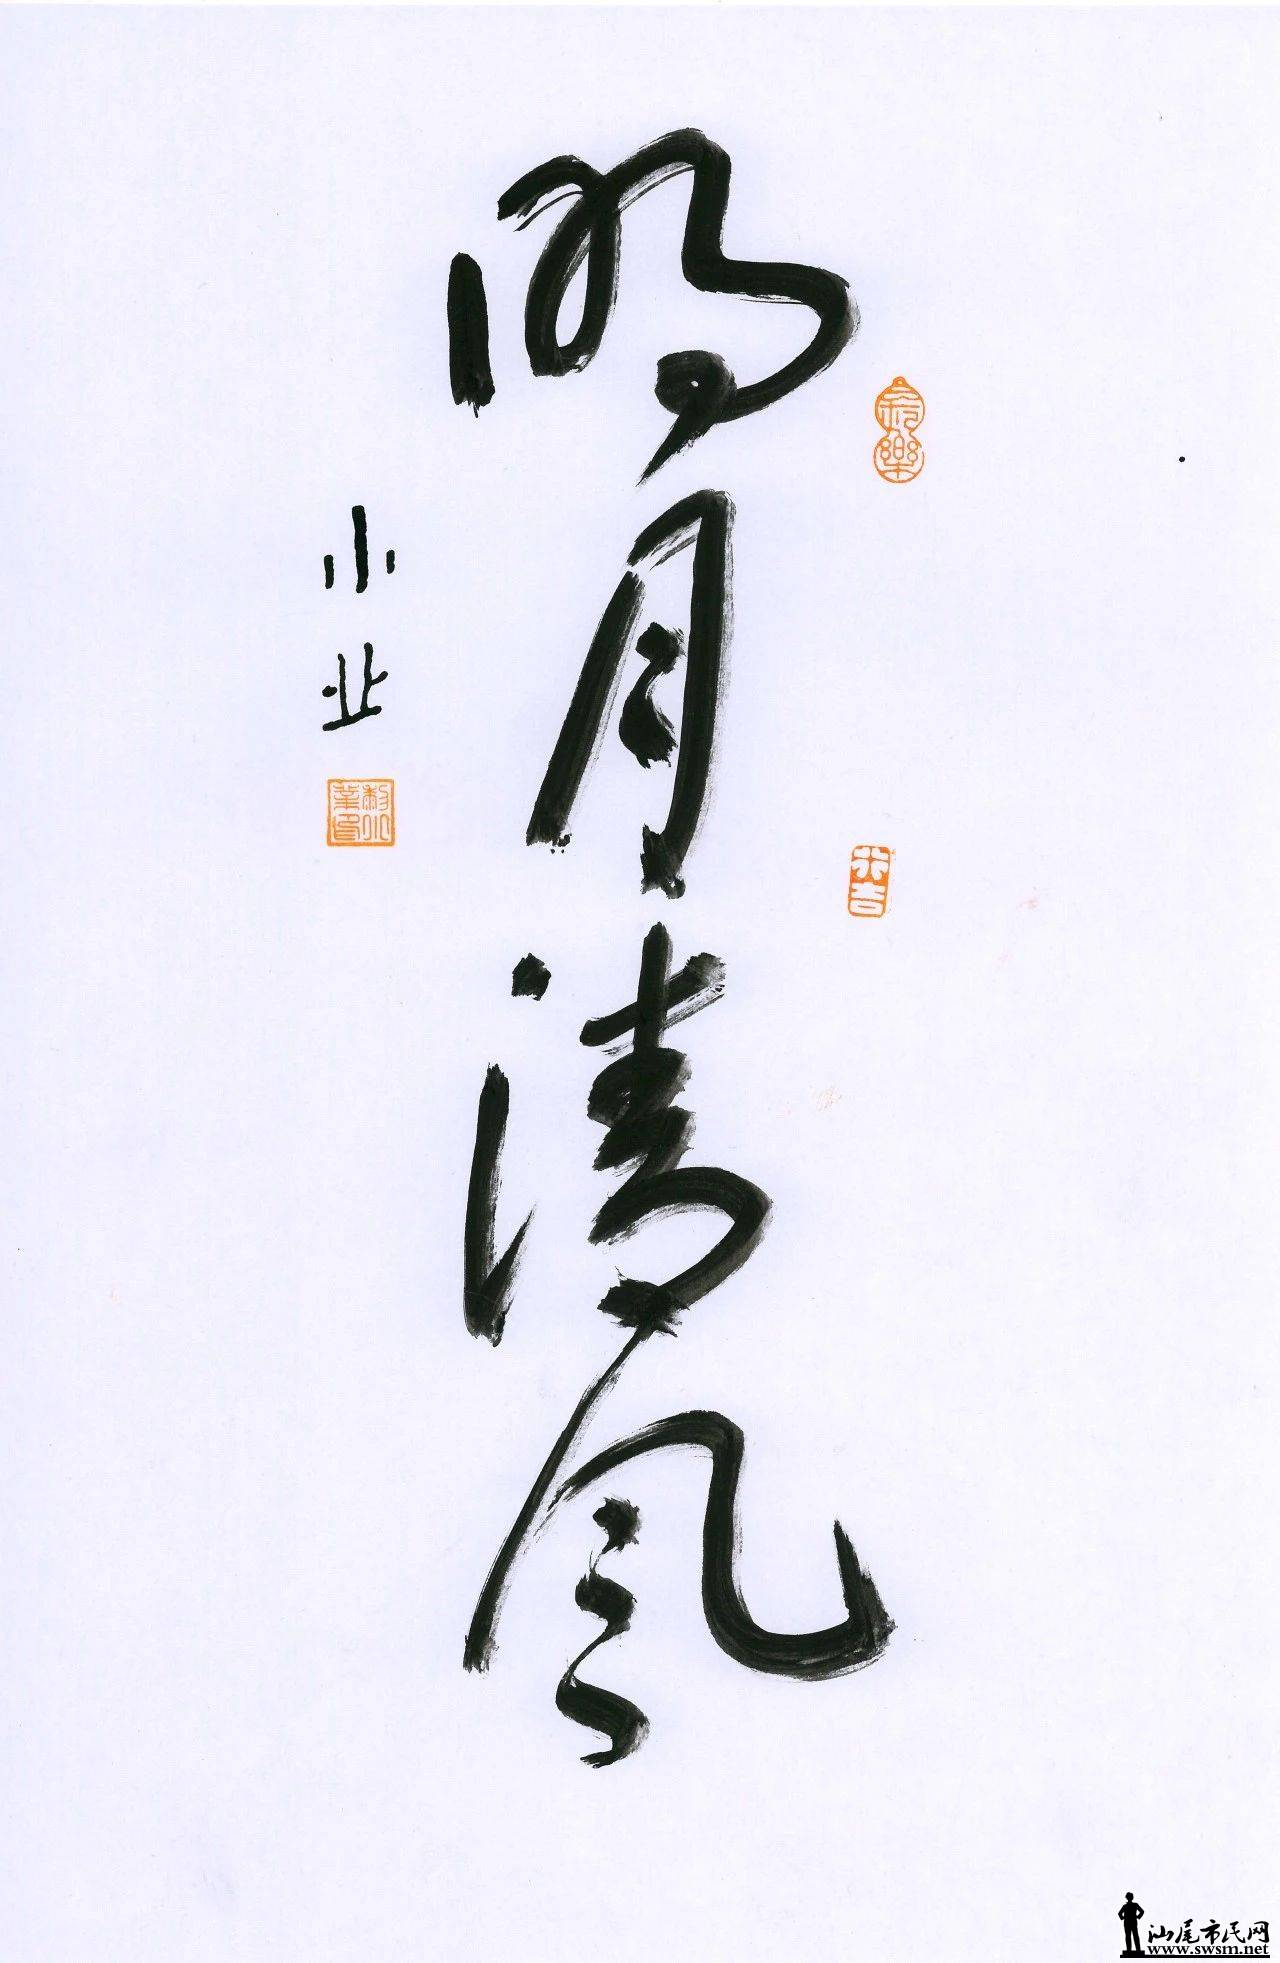 明月清风
小业
汕尾市民网
www.swsm.net